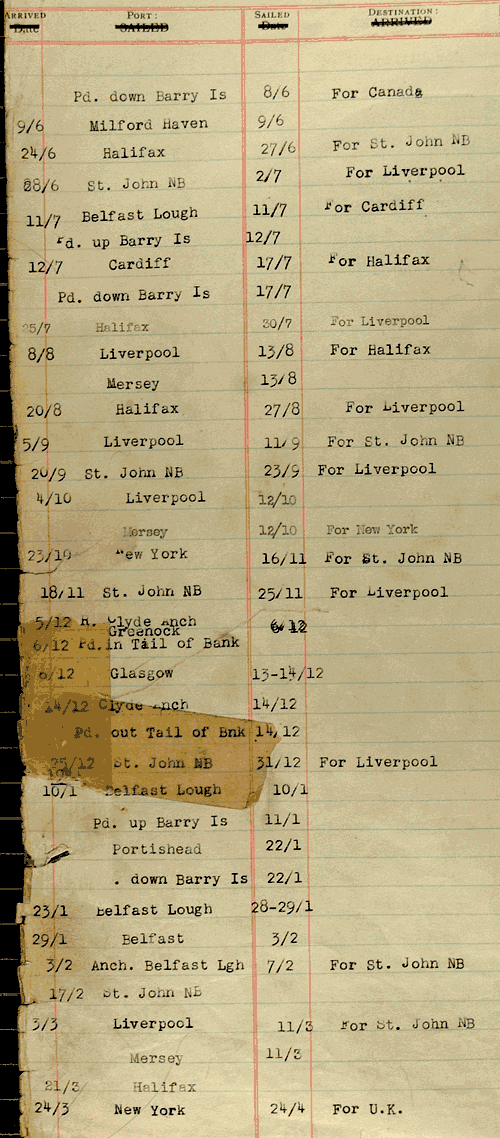 ARRIVED PORT: SAILED DESTINATION:
Date SAILED Date ARRIVED
Pd. down Barry Is 8/6 For Canada
9/6 Milford Haven 9/6
24/6 Halifax 27/6 For St. John NB
28/6 St. John NB 2/7 For Liverpool
11/7 Belfast Lough 11/7 For Cardiff
Pd. up Barry Is 12/7
12/7 Cardiff 17/7 For Halifax
Pd. down Barry Is 17/7
25/7 Halifax 30/7 For Liverpool
8/8 Liverpool 13/8 For Halifax
Mersey 13/8
20/8 Halifax 27/8 For Liverpool
5/9 Liverpool 11/9 For St. John NB
20/9 St. John NB 23/9 For Liverpool
4/10 Liverpool 12/10
Mersey 12/10 For New York
23/10 New York 16/11 For St. John NB
18/11 St. John NB 25/11 For Liverpool
5/12 R. Clyde Anch 6/12
Greenock
6/12 Pd.in Tail of Bank
6/12 Glasgow 13-14/12
14/12 Clyde Anch 14/12
Pd. out Tail of Bnk 14/12
25/12 St. John NB 31/12 For Liverpool
10/1 Belfast Lough 10/1
Pd. up Barry Is 11/1
Portishead 22/1
. down Barry Is 22/1
23/1 Belfast Lough 28-29/1
29/1 Belfast 3/2
3/2 Anch. Belfast Lgh 7/2 For St. John NB
17/2 St. John NB
3/3 Liverpool 11/3 For St. John NB
Mersey 11/3
21/3 Halifax
24/3 New York 24/4 For U.K.